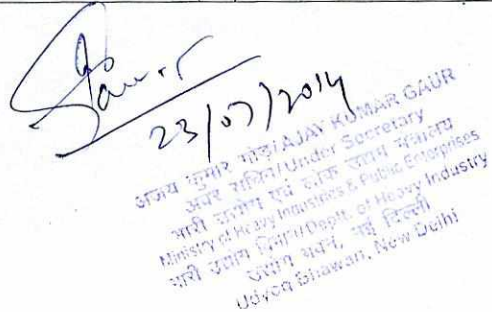 23/07/2014
अजय कुमार गौड़/AJAY KUMAR GAUR
अवर सचिव/Under Secretary
भारी उद्योग एवं लोक उद्यम मंत्रालय
Ministry of Heavy Industries & Public Enterprises
भारी उद्योग विभाग/Deptt. of Heavy Industry
उद्योग भवन, नई दिल्ली
Udyog Bhawan, New Delhi